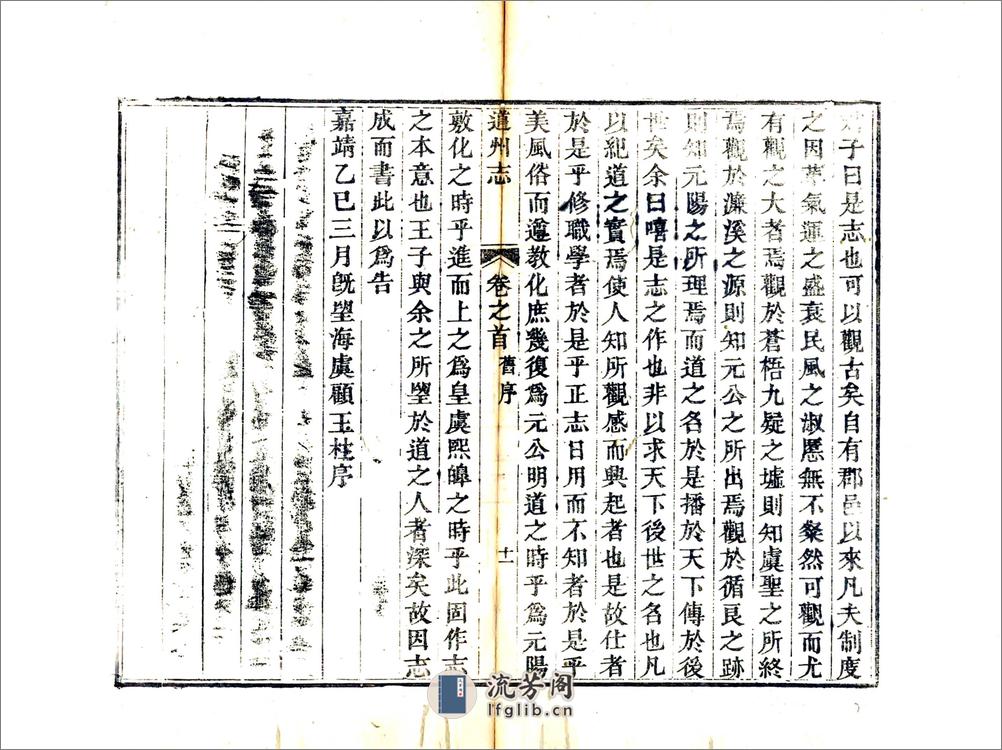 子曰是志也可以觀古矣自有郡邑以來凡夫制度
之因革氣運之盛衰民風之淑慝無不粲然可觀而尤
有觀之大者焉觀於蒼梧九疑之墟則知虞聖之所終
焉觀於濂溪之源則知元公之所出焉觀於循良之跡
則知元陽之所理焉而道之名於是播於天下傳於後
世矣余曰嘻是志之作也非以求天下後世之名也凡
以紀道之實焉使人知所觀感而興起者也是故仕者
於是乎修職學者於是乎正志日用而不知者於是乎
美風俗而遵教化庶幾復爲元公明道之時乎爲元陽
道州志
卷之首
舊序
十一
敷化之時乎進而上之爲皇虞熙皡之時乎此固作志
之本意也王子與余之所望於道之人者深矣故因志
成而書此以爲告
嘉靖乙巳三月旣望海虞顧玉柱序
流芳阁
lfglib.cn